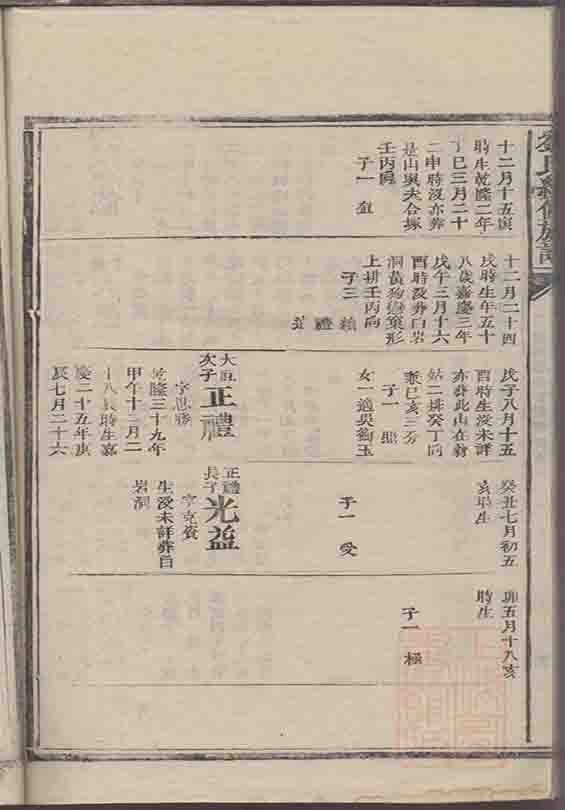 十二月十五寅
時生乾隆二年
丁巳三月二十
二申時沒亦葬
是山與夫合塚
壬丙向
子一
十二月二十四
戌時生年五十
八歲嘉慶三年
戊午三月十六
酉時沒葬白岩
洞黃狗戀窠形
上排壬丙向
子三
禮
戊子八月十五
酉時生沒未詳
亦葬此山在翁
姑二排癸丁向
兼巳亥三分
子一
女一適吳
次子正禮
字思
乾隆三十九年
甲午十二月二
十八辰時生嘉
慶二十五年庚
辰七月二十六
癸丑七月初五
亥時生
子一 愛
正禮
長子光益
字克賓
生沒未詳葬白
岩洞
卯五月十八亥
時生
子一 極